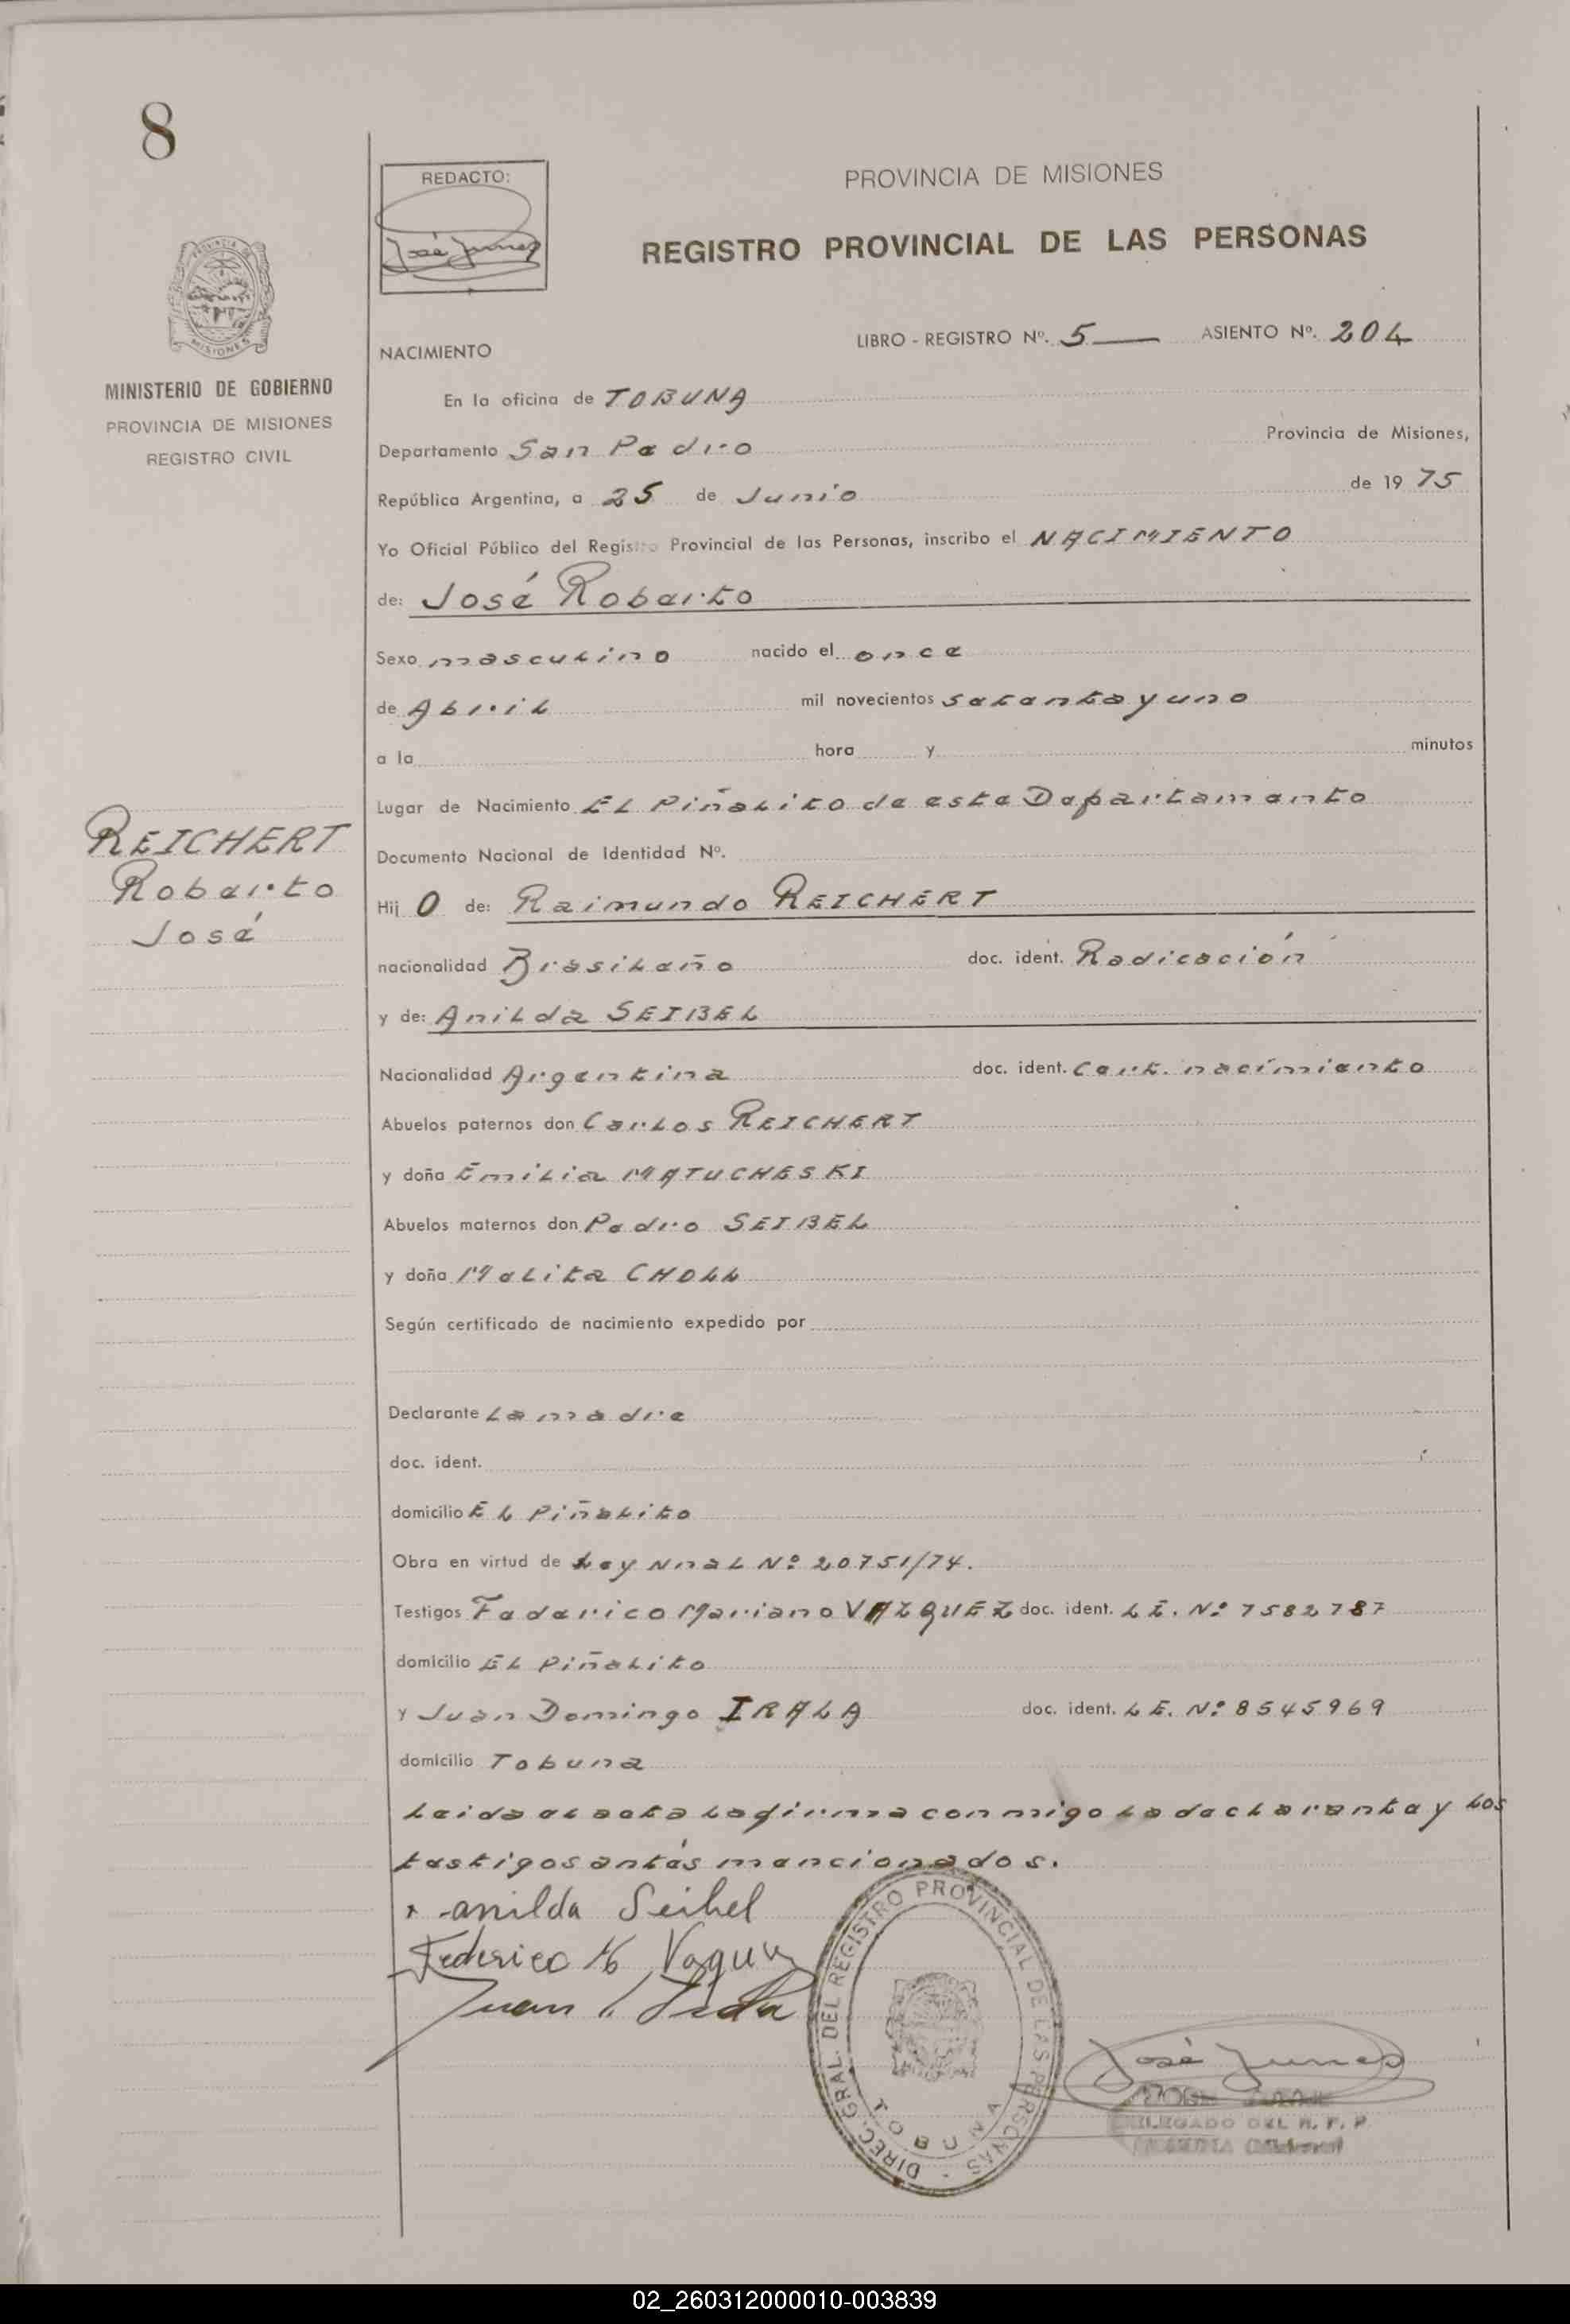 8
REDACTO:
José Junes
PROVINCIA DE MISIONES
REGISTRO PROVINCIAL DE LAS PERSONAS
PROVINCIA DE
MISIONES
MINISTERIO DE GOBIERNO
PROVINCIA DE MISIONES
REGISTRO CIVIL
LIBRO - REGISTRO Nº. 5 ASIENTO Nº. 204
NACIMIENTO
En la oficina de TOBUNA
Departamento San Pedro Provincia de Misiones,
República Argentina, a 25 de Junio de 1975
Yo Oficial Público del Registro Provincial de las Personas, inscribo el NACIMIENTO
de: José Roberto
Sexo masculino nacido el once
de Abril mil novecientos setenta y uno
a la hora y minutos
Lugar de Nacimiento EL Piñalito de este Departamento
REICHERT
Roberto
José
Documento Nacional de Identidad Nº.
Hij O de: Raimundo REICHERT
nacionalidad Brasileño doc. ident. Radicación
y de: Anilda SEIBEL
Nacionalidad Argentina doc. ident. Cert. nacimiento
Abuelos paternos don Carlos REICHERT
y doña Emilia MATUCHESKI
Abuelos maternos don Pedro SEIBEL
y doña Melita CHOLL
Según certificado de nacimiento expedido por
Declarante La madre
doc. ident.
domicilio EL Piñalito
Obra en virtud de Ley Nnal Nº 20751/74.
Testigos Federico Mariano VAZQUEZ doc. ident. L E. Nº 7582787
domicilio EL Piñalito
y Juan Domingo IRALA doc. ident. L E. Nº 8545969
domicilio Tobuna
Leida el acta la firma con migo la declarante y los
testigos antés mencionados.
x anilda Seibel
Federico M
Juan
DIREC. GRAL. DEL REGISTRO PROVINCIAL DE LAS PERSONAS -
TOBUNA
José Junes
DELEGADO DEL R. P. P.
(Misiones)
02_260312000010-003839